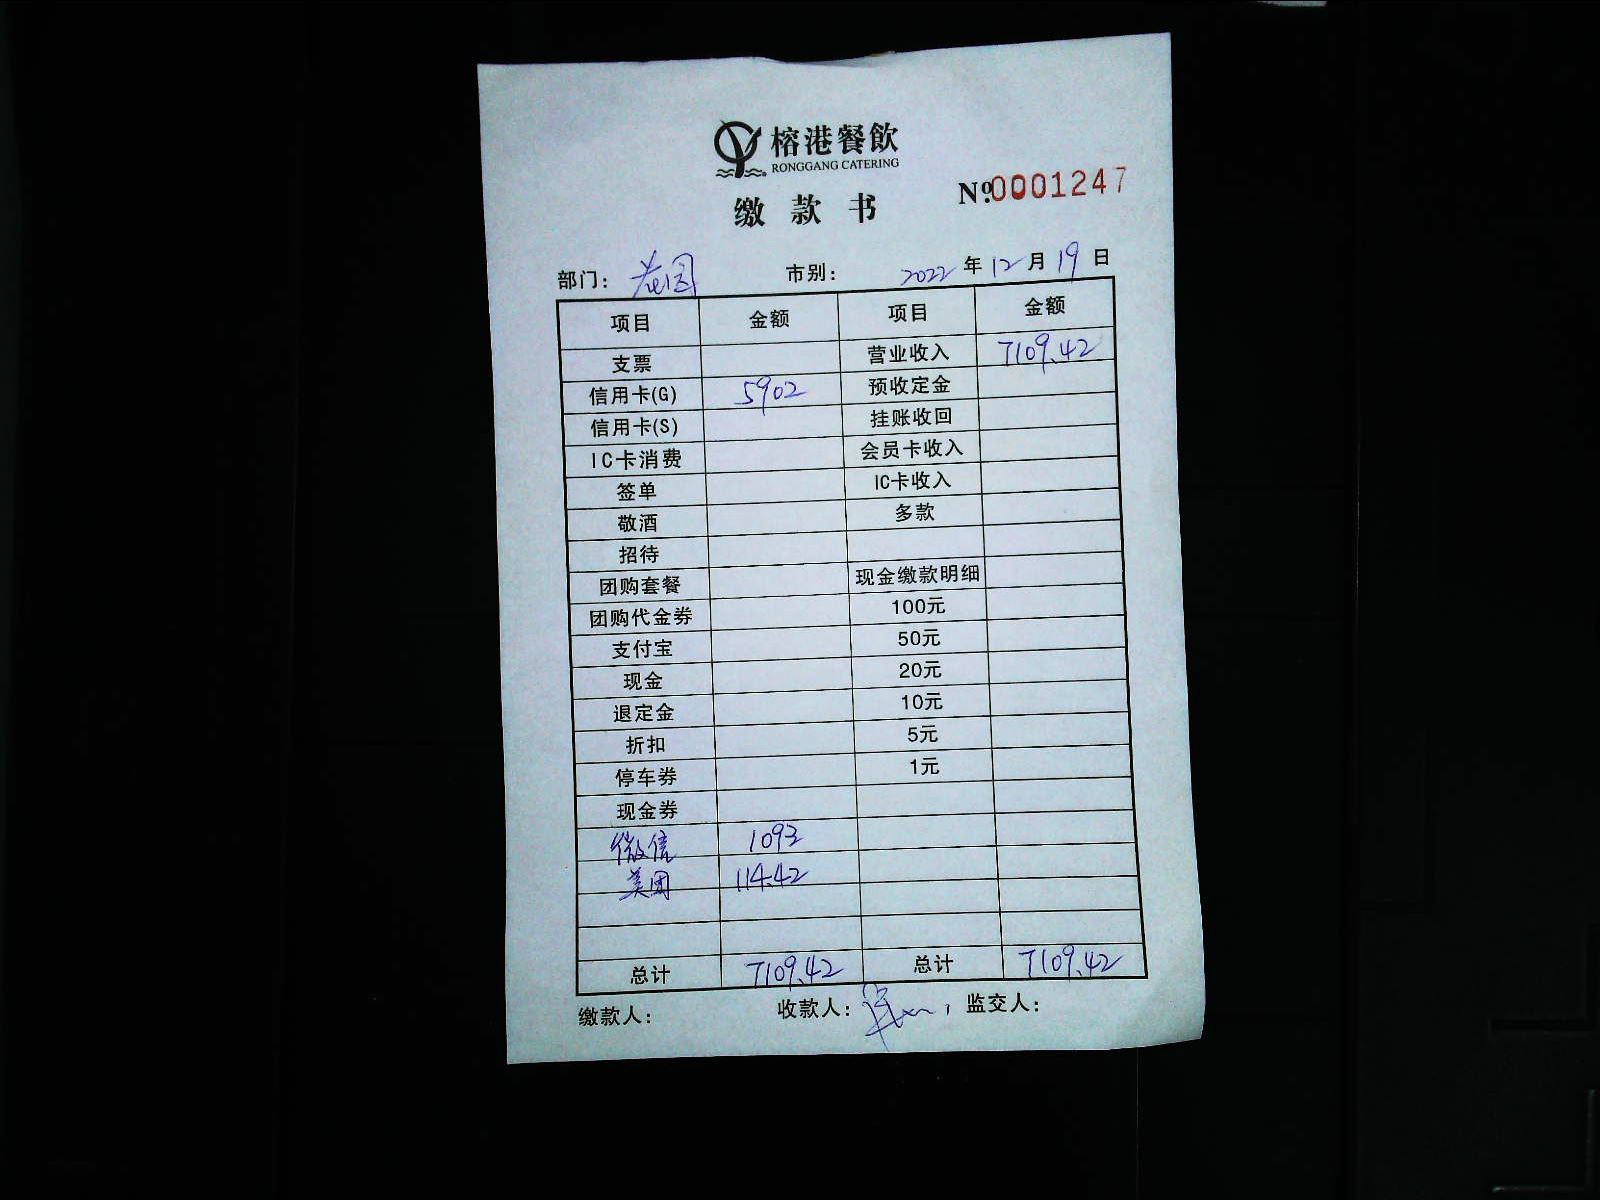 榕港餐飲
RONGGANG CATERING
缴款书 №0001247
部门: 市别: 2022年12月19日
项目 金额 项目 金额
支票 营业收入 7109.42
信用卡(G) 5902 预收定金
信用卡(S) 挂账收回
IC卡消费 会员卡收入
签单 IC卡收入
敬酒 多款
招待
团购套餐 现金缴款明细
团购代金券 100元
支付宝 50元
现金 20元
退定金 10元
折扣 5元
停车券 1元
现金券
微信 1093
美团 114.42
总计 7109.42 总计 7109.42
缴款人: 收款人: 监交人: